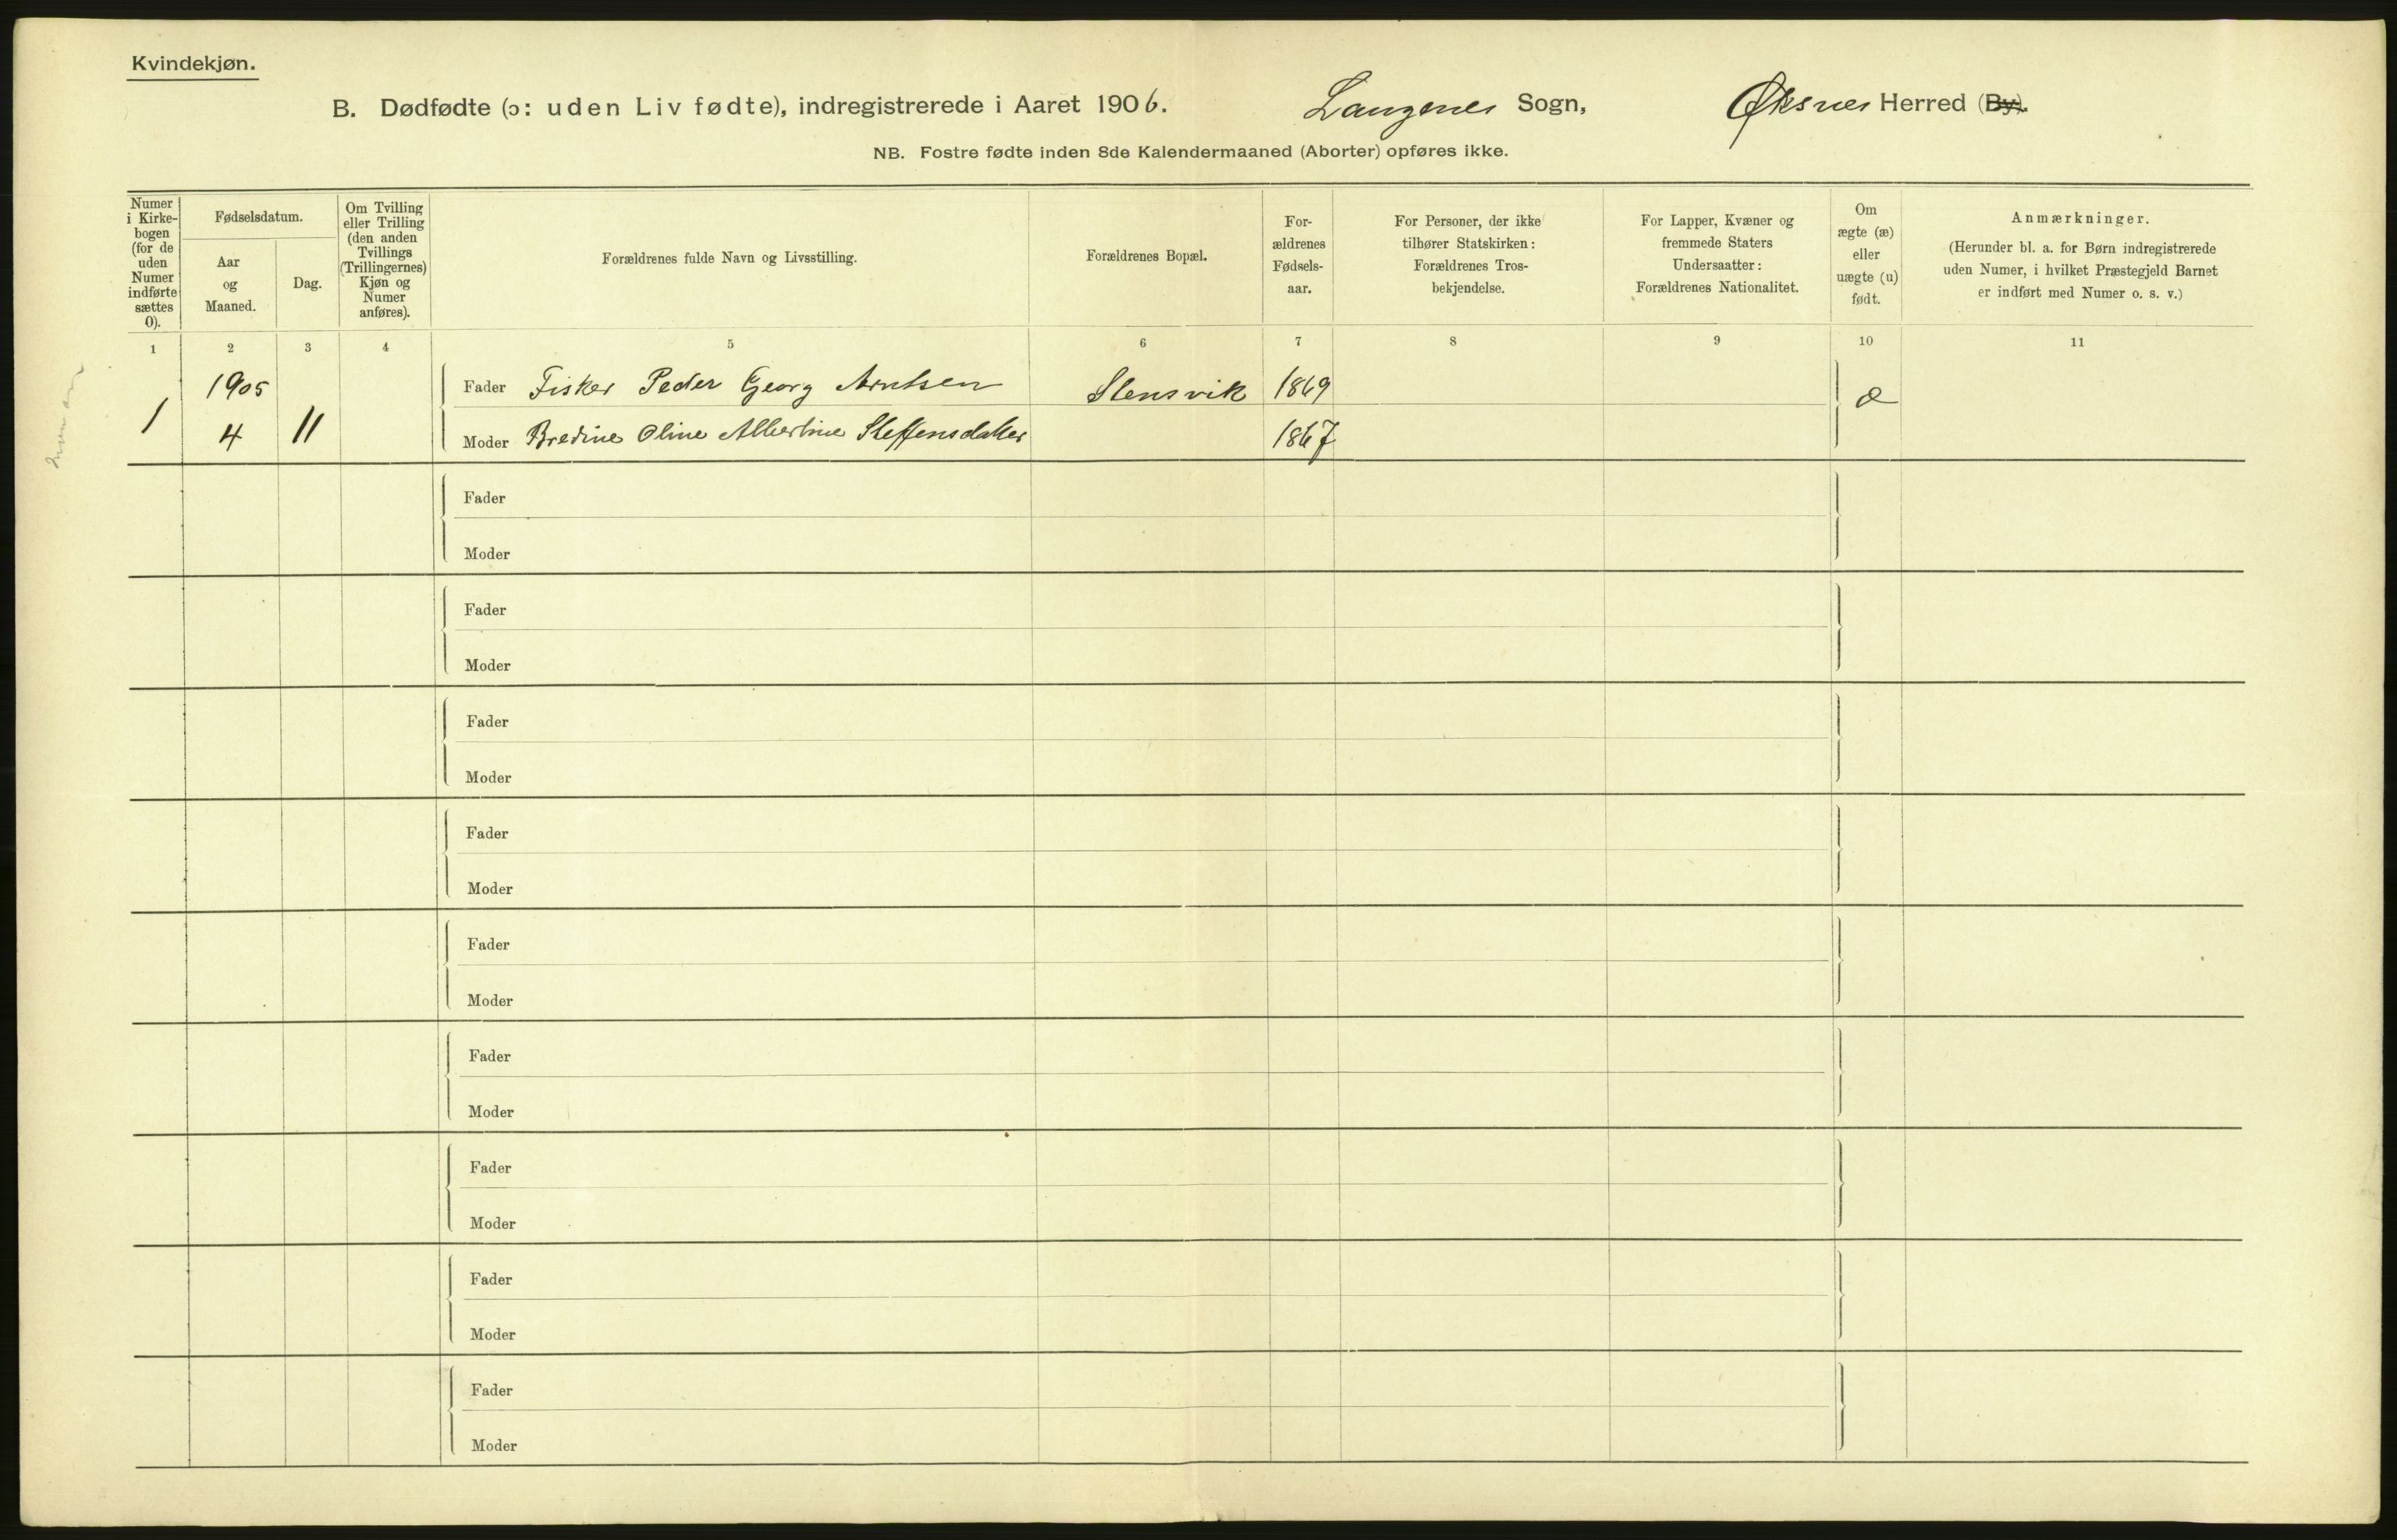 Kvindekjøn.
B. Dødfødte (ɔ: uden Liv fødte), indregistrerede i Aaret 1906. Langenes Sogn, Øksnes Herred (By).
NB. Fostre fødte inden 8de Kalendermaaned (Aborter) opføres ikke.
Numer i Kirkebogen (for de uden Numer indførte sættes 0).
Fødselsdatum.
Aar og Maaned.
Dag.
Om Tvilling eller Trilling (den anden Tvillings (Trillingernes) Kjøn og Numer anføres).
Forældrenes fulde Navn og Livsstilling.
Forældrenes Bopæl.
Forældrenes Fødselsaar.
For Personer, der ikke tilhører Statskirken: Forældrenes Trosbekjendelse.
For Lapper, Kvæner og fremmede Staters Undersaatter: Forældrenes Nationalitet.
Om ægte (æ) eller uægte (u) født.
Anmærkninger.
(Herunder bl. a. for Børn indregistrerede uden Numer, i hvilket Præstegjeld Barnet er indført med Numer o. s. v.)
1 2 3 4 5 6 7 8 9 10 11
1905 Fader Fisker Peder Georg Arntsen Stensvik 1869 æ
1 4 11 Moder Bredine Oline Albertine Steffensdatter 1867
Fader
Moder
Fader
Moder
Fader
Moder
Fader
Moder
Fader
Moder
Fader
Moder
Fader
Moder
Fader
Moder
Fader
Moder